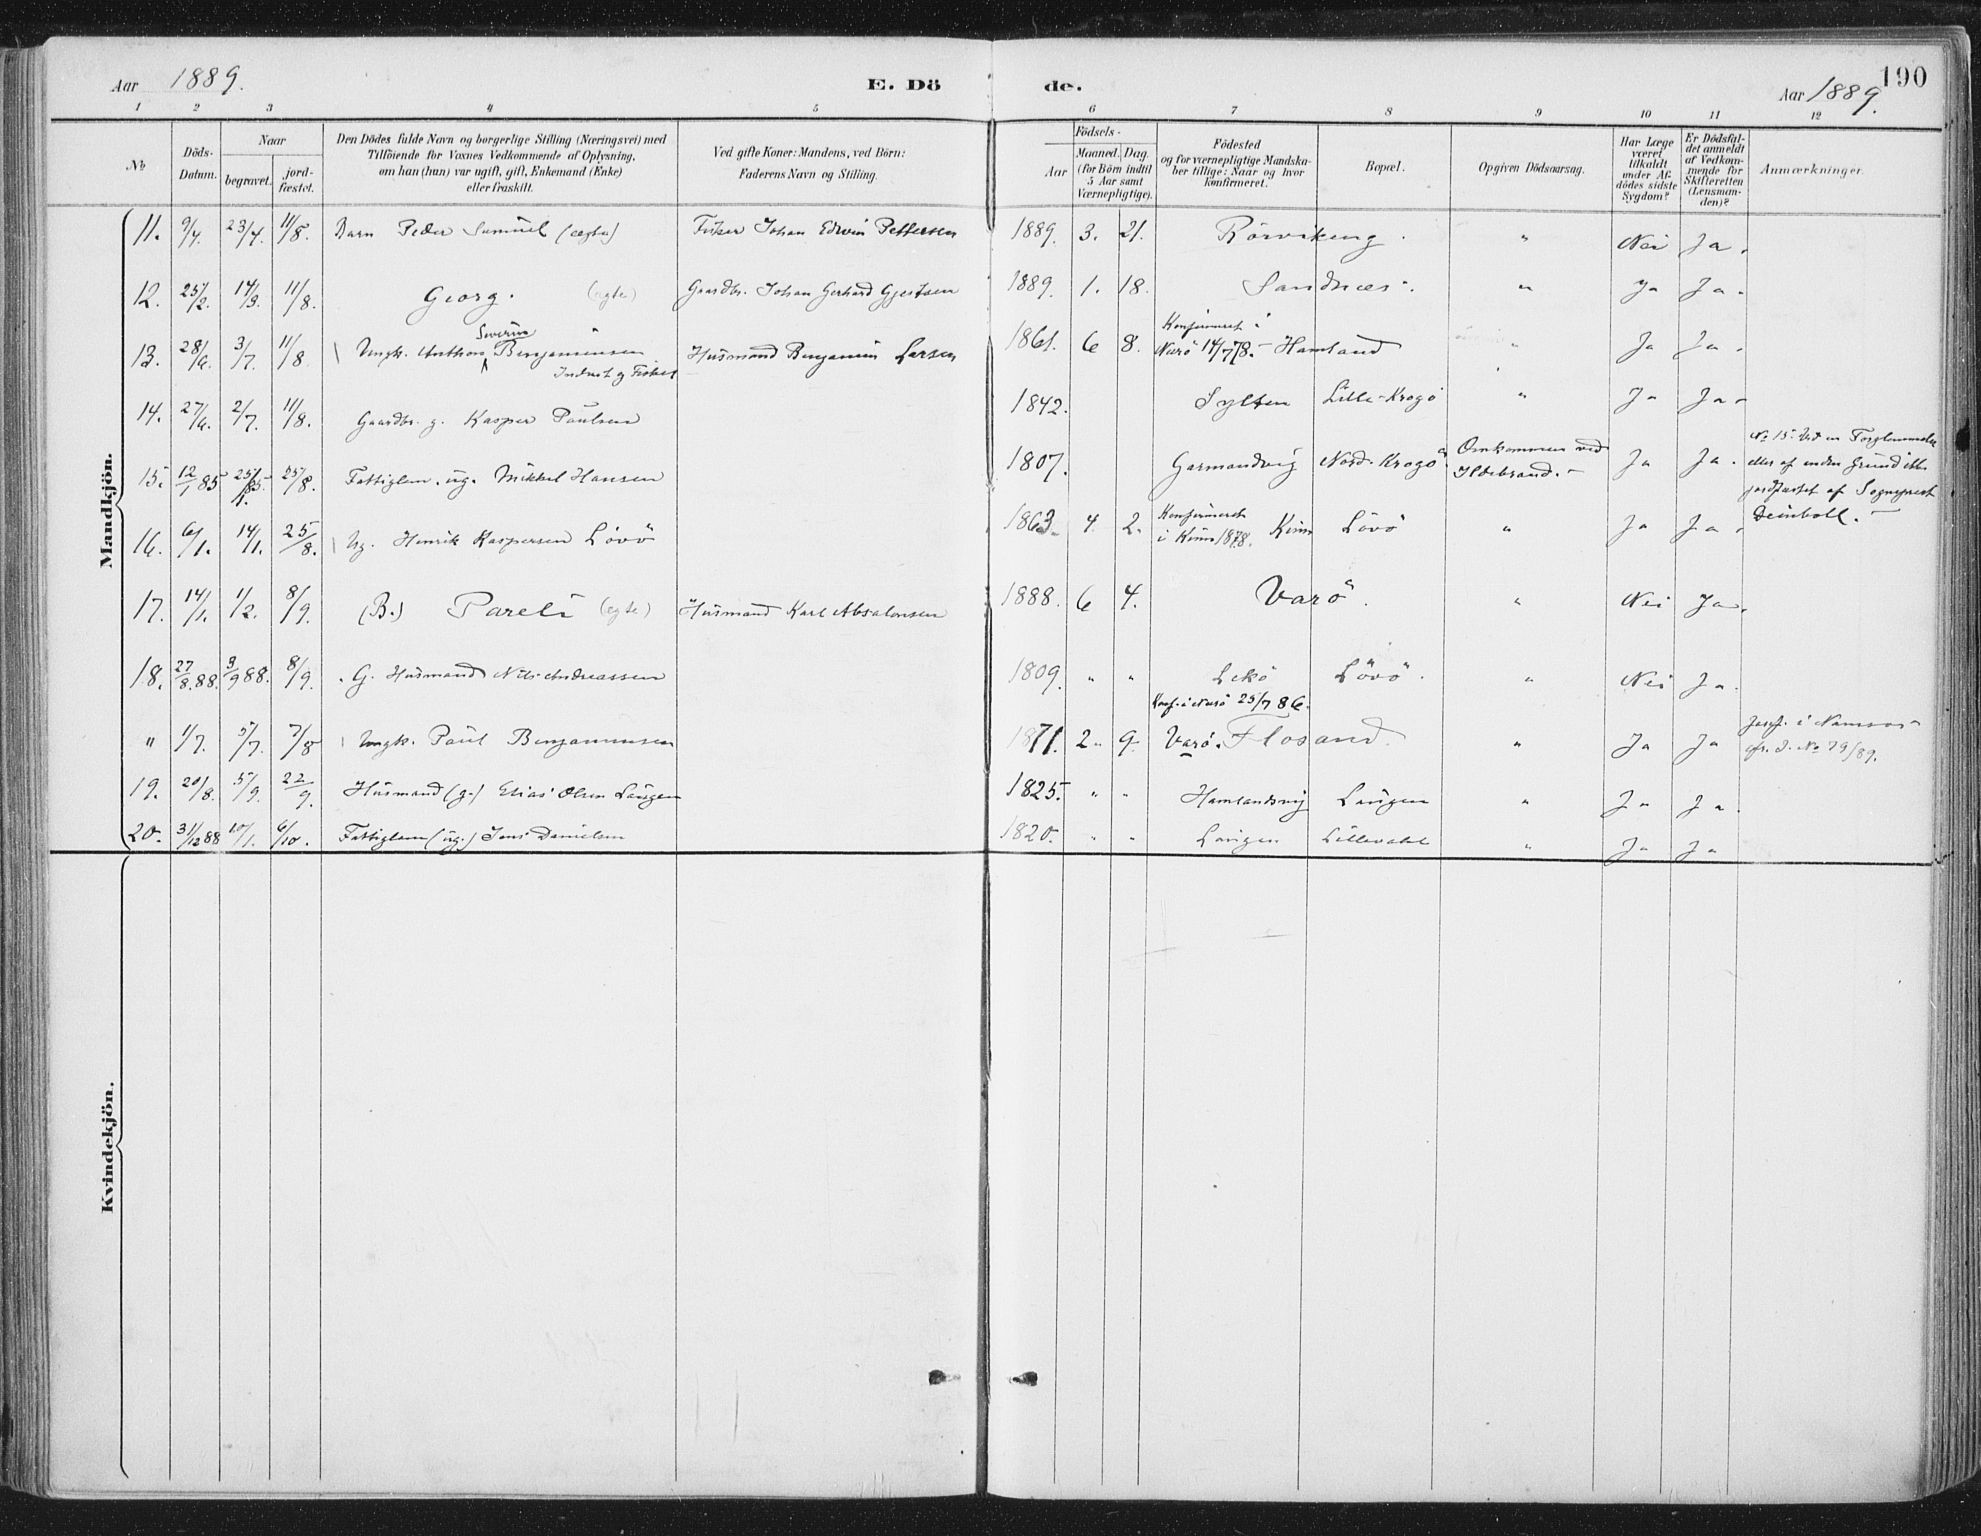 Aar 1889. E. Dö de. Aar 1889. 190
1 2 3 4 5 6 7 8 9 10 11 12
No Döds-Datum. Naar begravet. jord-fæstet. Den Dödes fulde Navn og borgerlige Stilling (Næringsvei) med Tilföiende for Voxnes Vedkommende af Oplysning, om han (hun) var ugift, gift, Enkemand (Enke) eller fraskilt. Ved gifte Koner: Mandens, ved Börn: Faderens Navn og Stilling. Födsels- Aar Maaned. Dag. (for Börn indtil 5 Aar samt Værnepligtige). Födested og for værnepligtige Mandskaber tillige: Naar og hvor konfirmeret. Bopæl. Opgiven Dödsaarsag. Har Læge været tilkaldt under Afdödes sidste Sygdom? Er Dödsfaldet anmeldt af Vedkommende for Skifteretten (Lensmanden)? Anmærkninger.
Mandkjön.
11. 9/4. 23/4. 11/8. Barn Peder Samuel (ægte) Fisker Johan Edvin Pettersen 1889. 3. 21. Rörvikeng. " Nei Ja.
12. 25/2. 14/3. 11/8. Georg. (ægte) Gaardbr. Johan Gerhard Gjertsen 1889. 1. 18. Sandnæs. " Ja Ja.
13. 28/6. 3/7. 11/8 Ungk. Anthon Severin Benjaminsen Indrst og Fisker Husmand Benjamin Larsen 1861. 6 8. Konfirmeret i Nærö 14/7 78. Hamland " Ja Ja.
14. 27/6. 2/7. 11/8. Gaardbr. g. Kasper Paulsen 1842. Sylten Lille-Krogö " Ja Ja.
15. 12/1 85 25/1 85. 25/8. Fattiglem. ug. Mikkel Hansen 1807. Garmandvig Nord-Krogö Omkommen ved Ildebrand. Ja Ja. No 15. Ved en Forglemmelse eller af anden Grund ikke jordfæstet af Sogneprest Deinboll.
16. 6/1. 14/1. 25/8. Ug. Henrik Kaspersen Lövö 1863. 4 2. Konfirmeret i Kinn 1878. Kinn Lövö " Ja Ja.
17. 14/1. 1/2. 8/9. (B.) Pareli (ægte) Husmand Karl Absalonsen 1888. 6 4. Varö. " Nei Ja.
18. 27/8 88. 3/9 88. 8/9. G. Husmand Nils Andreassen 1809. " " Lekö Lövö. " Nei Ja.
" 1/7. 5/7. 7/8 Ungk. Paul Benjaminsen 1871. 2. 9. Konf. i Nærö 25/7 86. Varö. Flosand. " Ja Ja Jordf. i Namsos cfr. D. No 79/89.
19. 20/8. 5/9. 22/9. Husmand (g.) Elias Olsen Laugen 1825. " " Hamlandsvig Laugen " Ja Ja.
20. 31/12 88 10/1. 6/10. Fattiglem (ug.) Jens Danielsen 1820. " " Laugen Lillevald " Ja Ja
Kvindekjön.